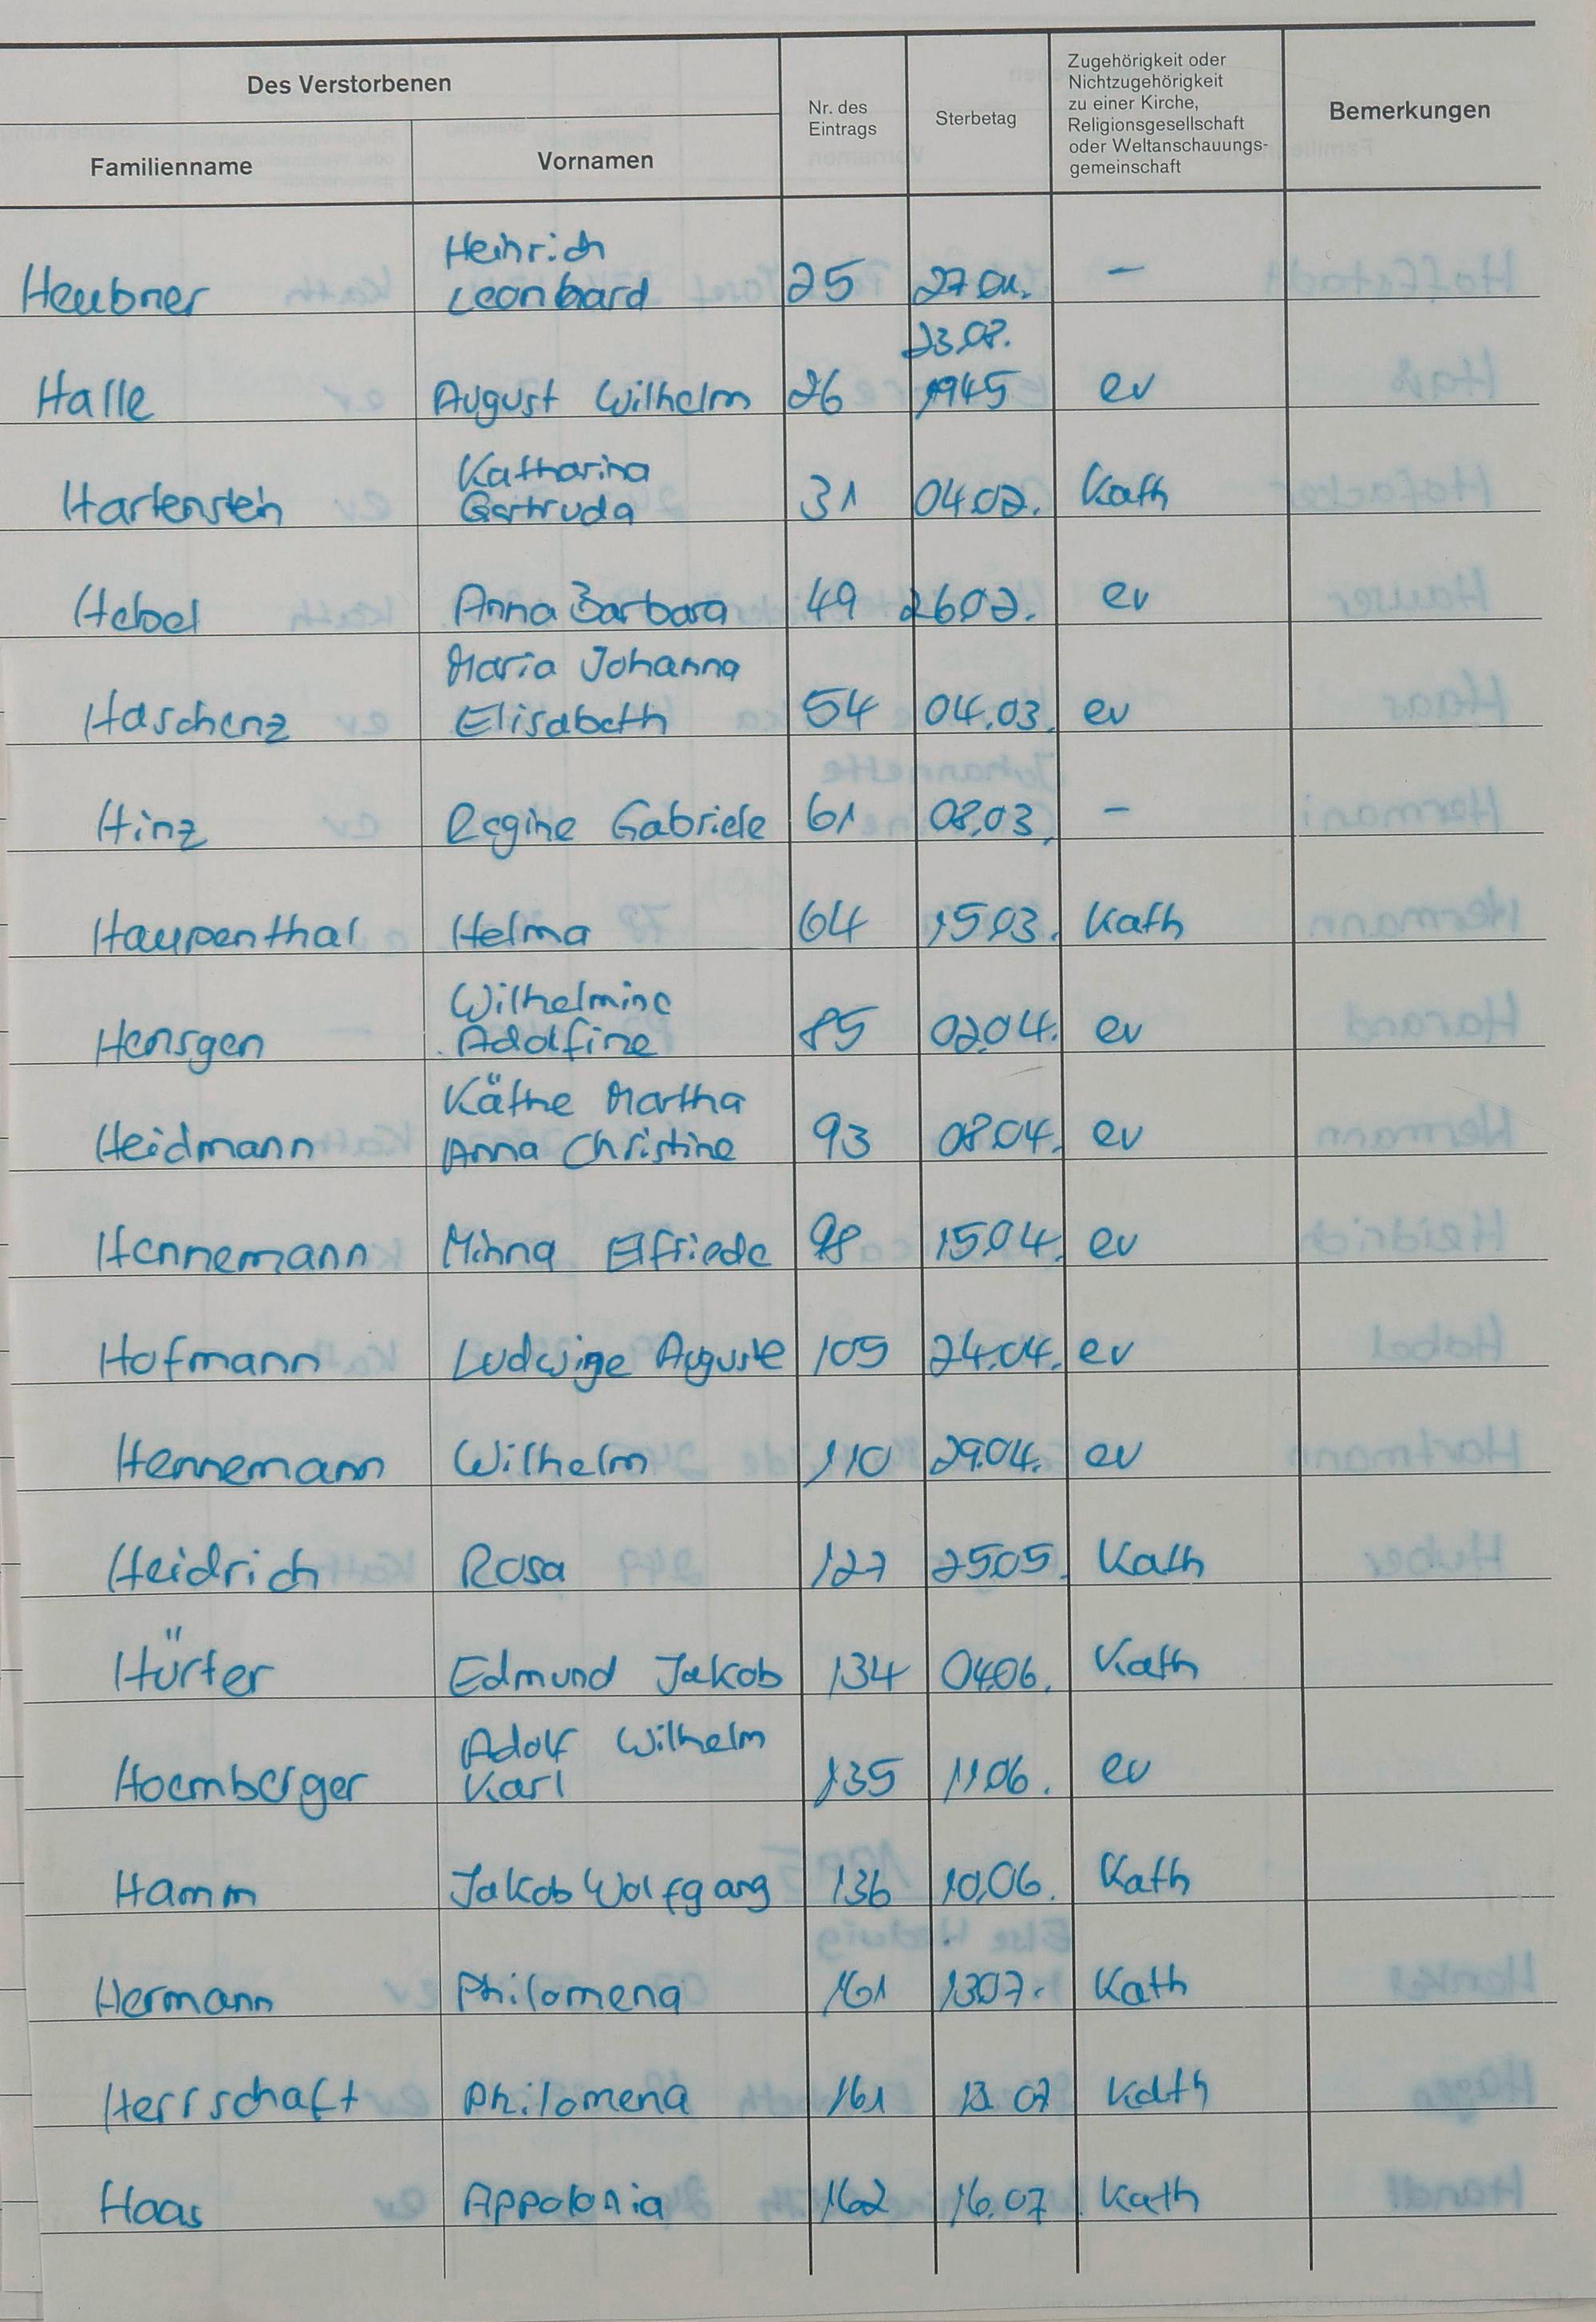 Des Verstorbenen
Familienname Vornamen
Nr. des
Eintrags
Sterbetag
Zugehörigkeit oder
Nichtzugehörigkeit
zu einer Kirche,
Religionsgesellschaft
oder Weltanschauungs-
gemeinschaft
Bemerkungen
Heinrich
Heubner Leonhard 25 27.01. –
23.08.
Halle August Wilhelm 26 1945 ev
Katharina
Hartenstein Gertruda 31 04.02. Kath
Hebel Anna Barbara 49 26.02. ev
Maria Johanna
Haschenz Elisabeth 54 04.03. ev
Hinz Regine Gabriele 61 08.03. –
Haupenthal Helma 64 15.03. Kath
Wilhelmine
Hensgen Adolfine 85 02.04. ev
Käthe Martha
Heidmann Anna Christine 93 08.04. ev
Hennemann Minna Elfriede 98 15.04. ev
Hofmann Ludwige Auguste 105 24.04. ev
Hennemann Wilhelm 110 29.04. ev
Heidrich Rosa 127 25.05. Kath
Hürter Edmund Jakob 134 04.06. Kath
Adolf Wilhelm
Hoemberger Karl 135 11.06. ev
Hamm Jakob Wolfgang 136 10.06. Kath
Hermann Philomena 161 13.07. Kath
Herrschaft Philomena 161 13.07 Kath
Haas Appolonia 162 16.07 Kath